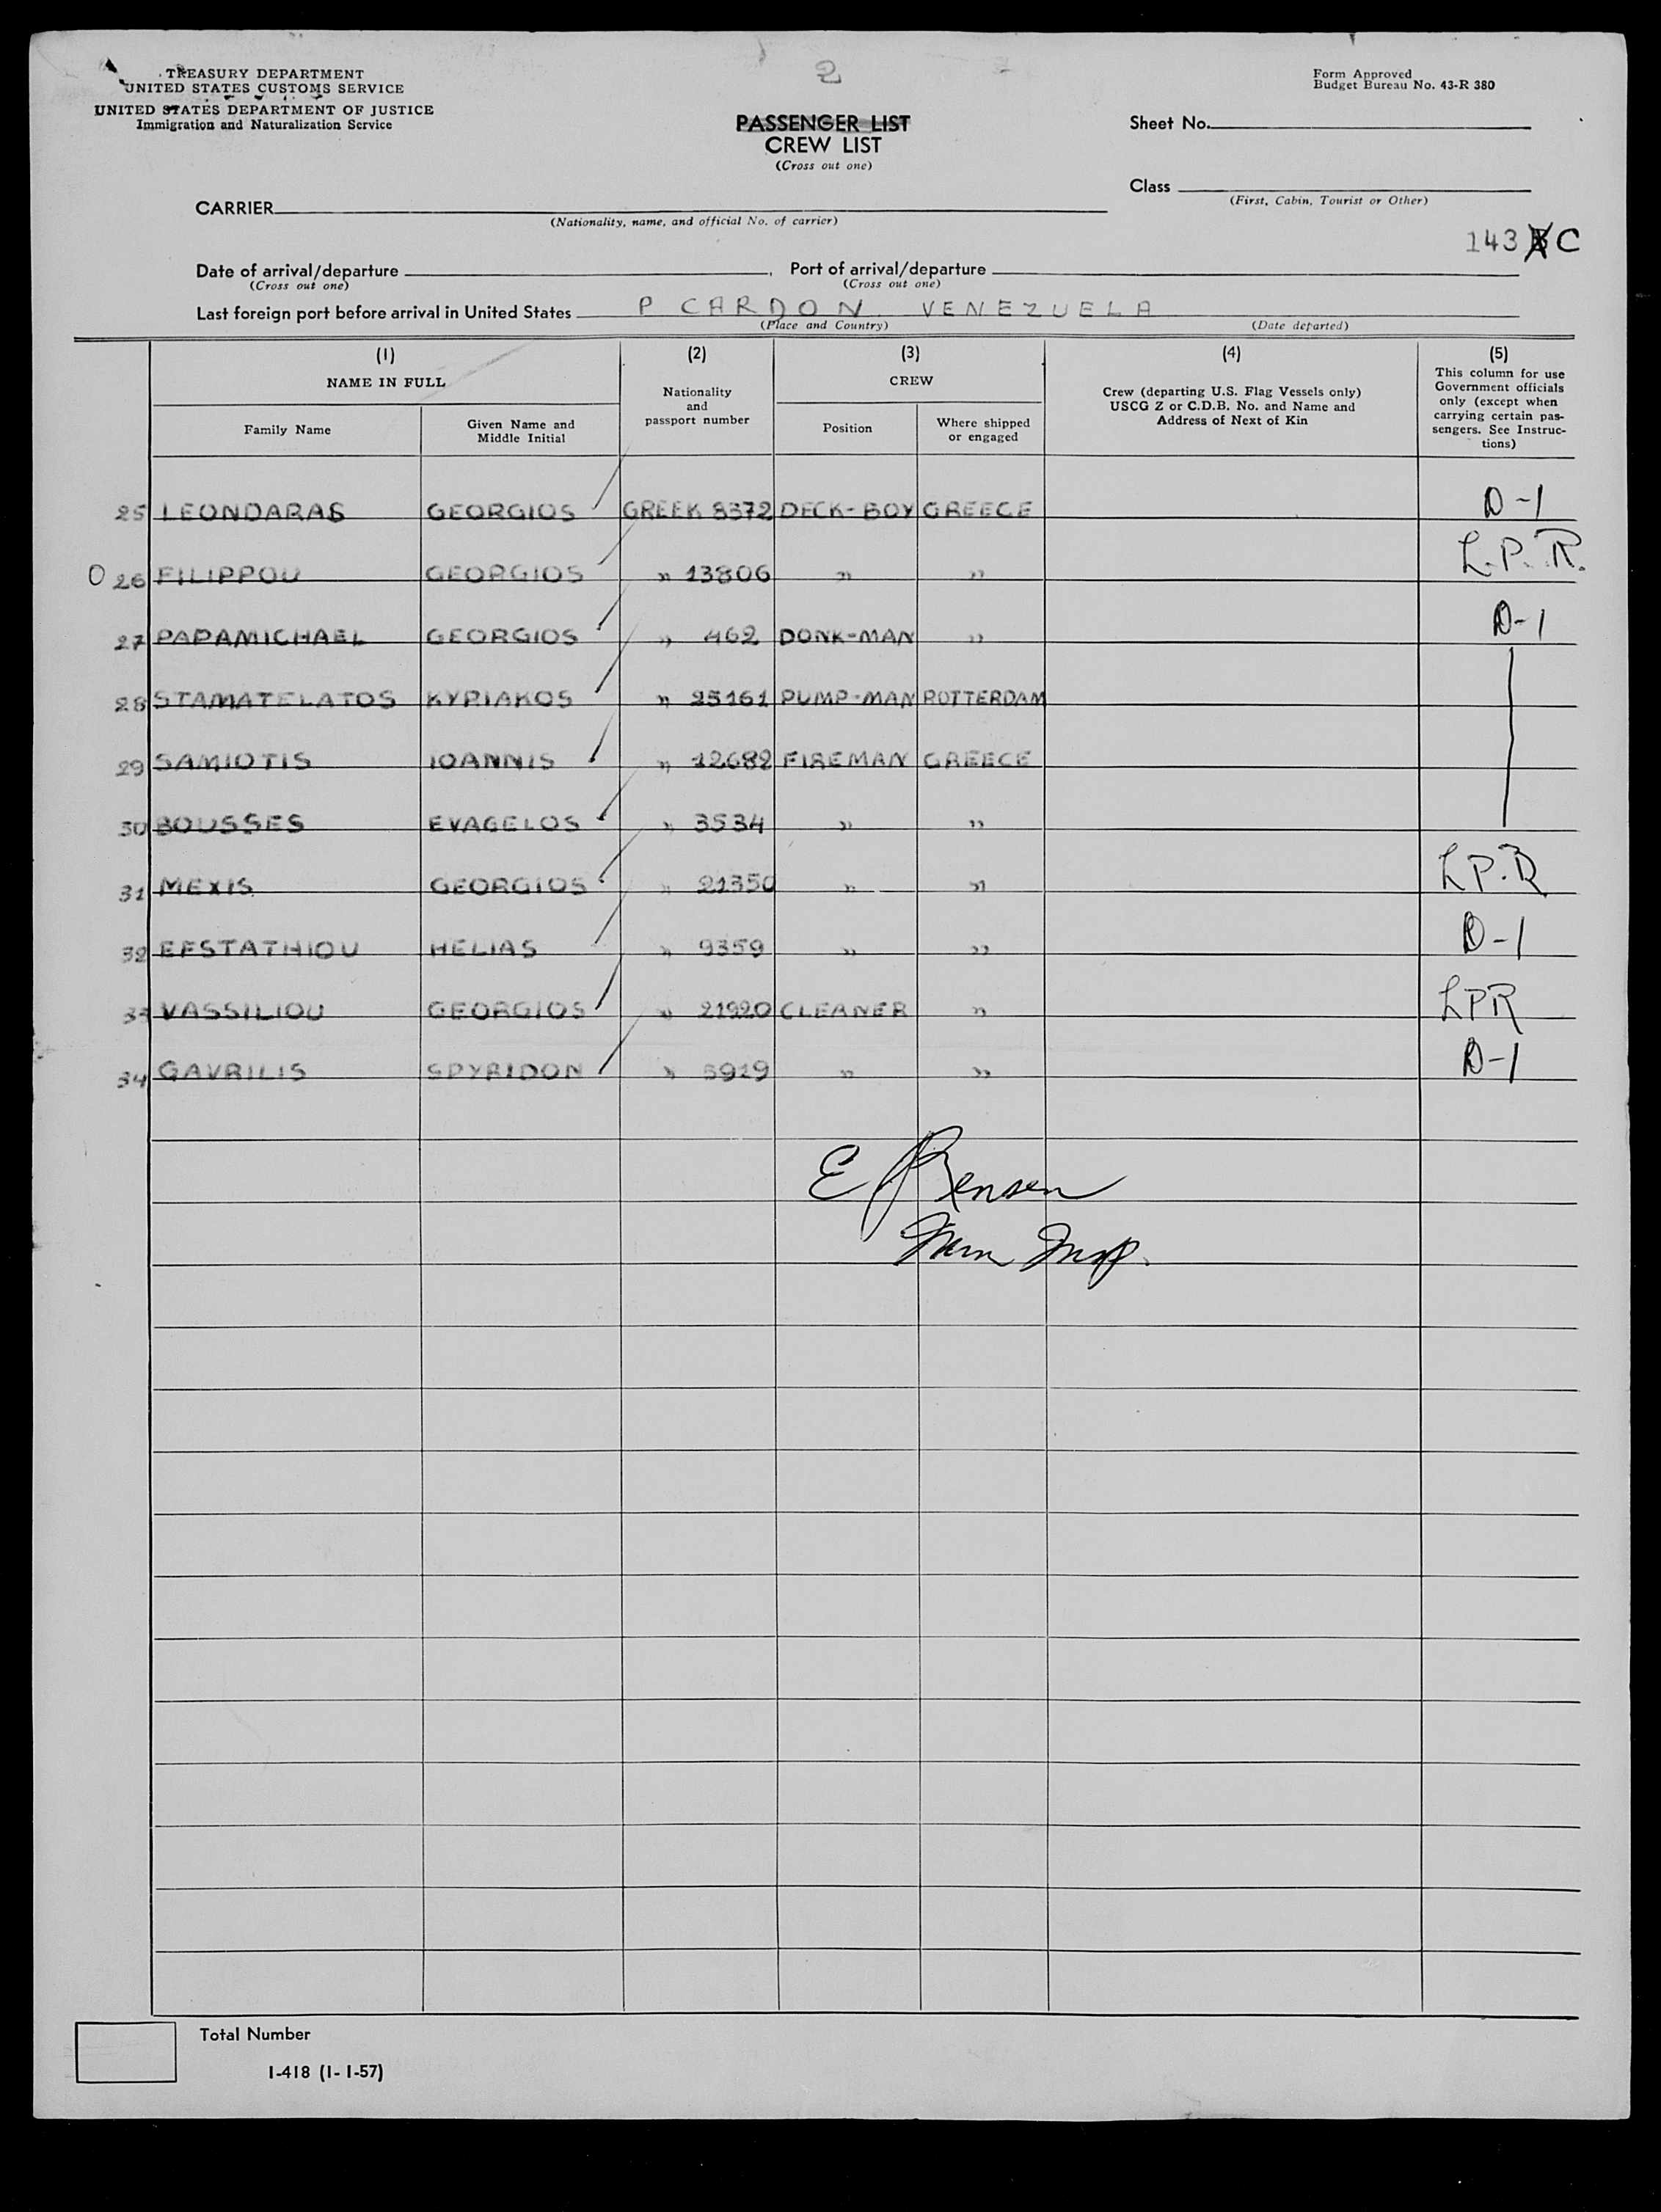 TREASURY DEPARTMENT
UNITED STATES CUSTOMS SERVICE
UNITED STATES DEPARTMENT OF JUSTICE
Immigration and Naturalization Service
2
Form Approved
Budget Bureau No. 43-R 380
PASSENGER LIST
CREW LIST
(Cross out one)
Sheet No.
Class
(First, Cabin, Tourist or Other)
CARRIER
(Nationality, name, and official No. of carrier)
143 C
Date of arrival/departure , Port of arrival/departure
(Cross out one) (Cross out one)
Last foreign port before arrival in United States P CARDON VENEZUELA
(Place and Country) (Date departed)
(1) (2) (3) (4) (5)
NAME IN FULL
Family Name
Given Name and
Middle Initial
Nationality
and
passport number
CREW
Position
Where shipped
or engaged
Crew (departing U.S. Flag Vessels only)
USCG Z or C.D.B. No. and Name and
Address of Next of Kin
This column for use
Government officials
only (except when
carrying certain pas-
sengers. See Instruc-
tions)
25 LEONDARAS GEORGIOS GREEK 8372 DECK-BOY GREECE D-1
O 26 FILIPPOU GEORGIOS " 13806 " " L.P.R.
27 PAPAMICHAEL GEORGIOS " 462 DONK-MAN " D-1
28 STAMATELATOS KYRIAKOS " 25161 PUMP-MAN ROTTERDAM
29 SAMIOTIS IOANNIS " 12682 FIREMAN GREECE
30 BOUSSES EVAGELOS " 3534 " "
31 MEXIS GEORGIOS " 21350 " " LP.R
32 EFSTATHIOU HELIAS " 9359 " " D-1
33 VASSILIOU GEORGIOS " 21920 CLEANER " LPR
34 GAVRILIS SPYRIDON " 5929 " " D-1
E Bensen
Imm Insp.
Total Number
I-418 (1-1-57)